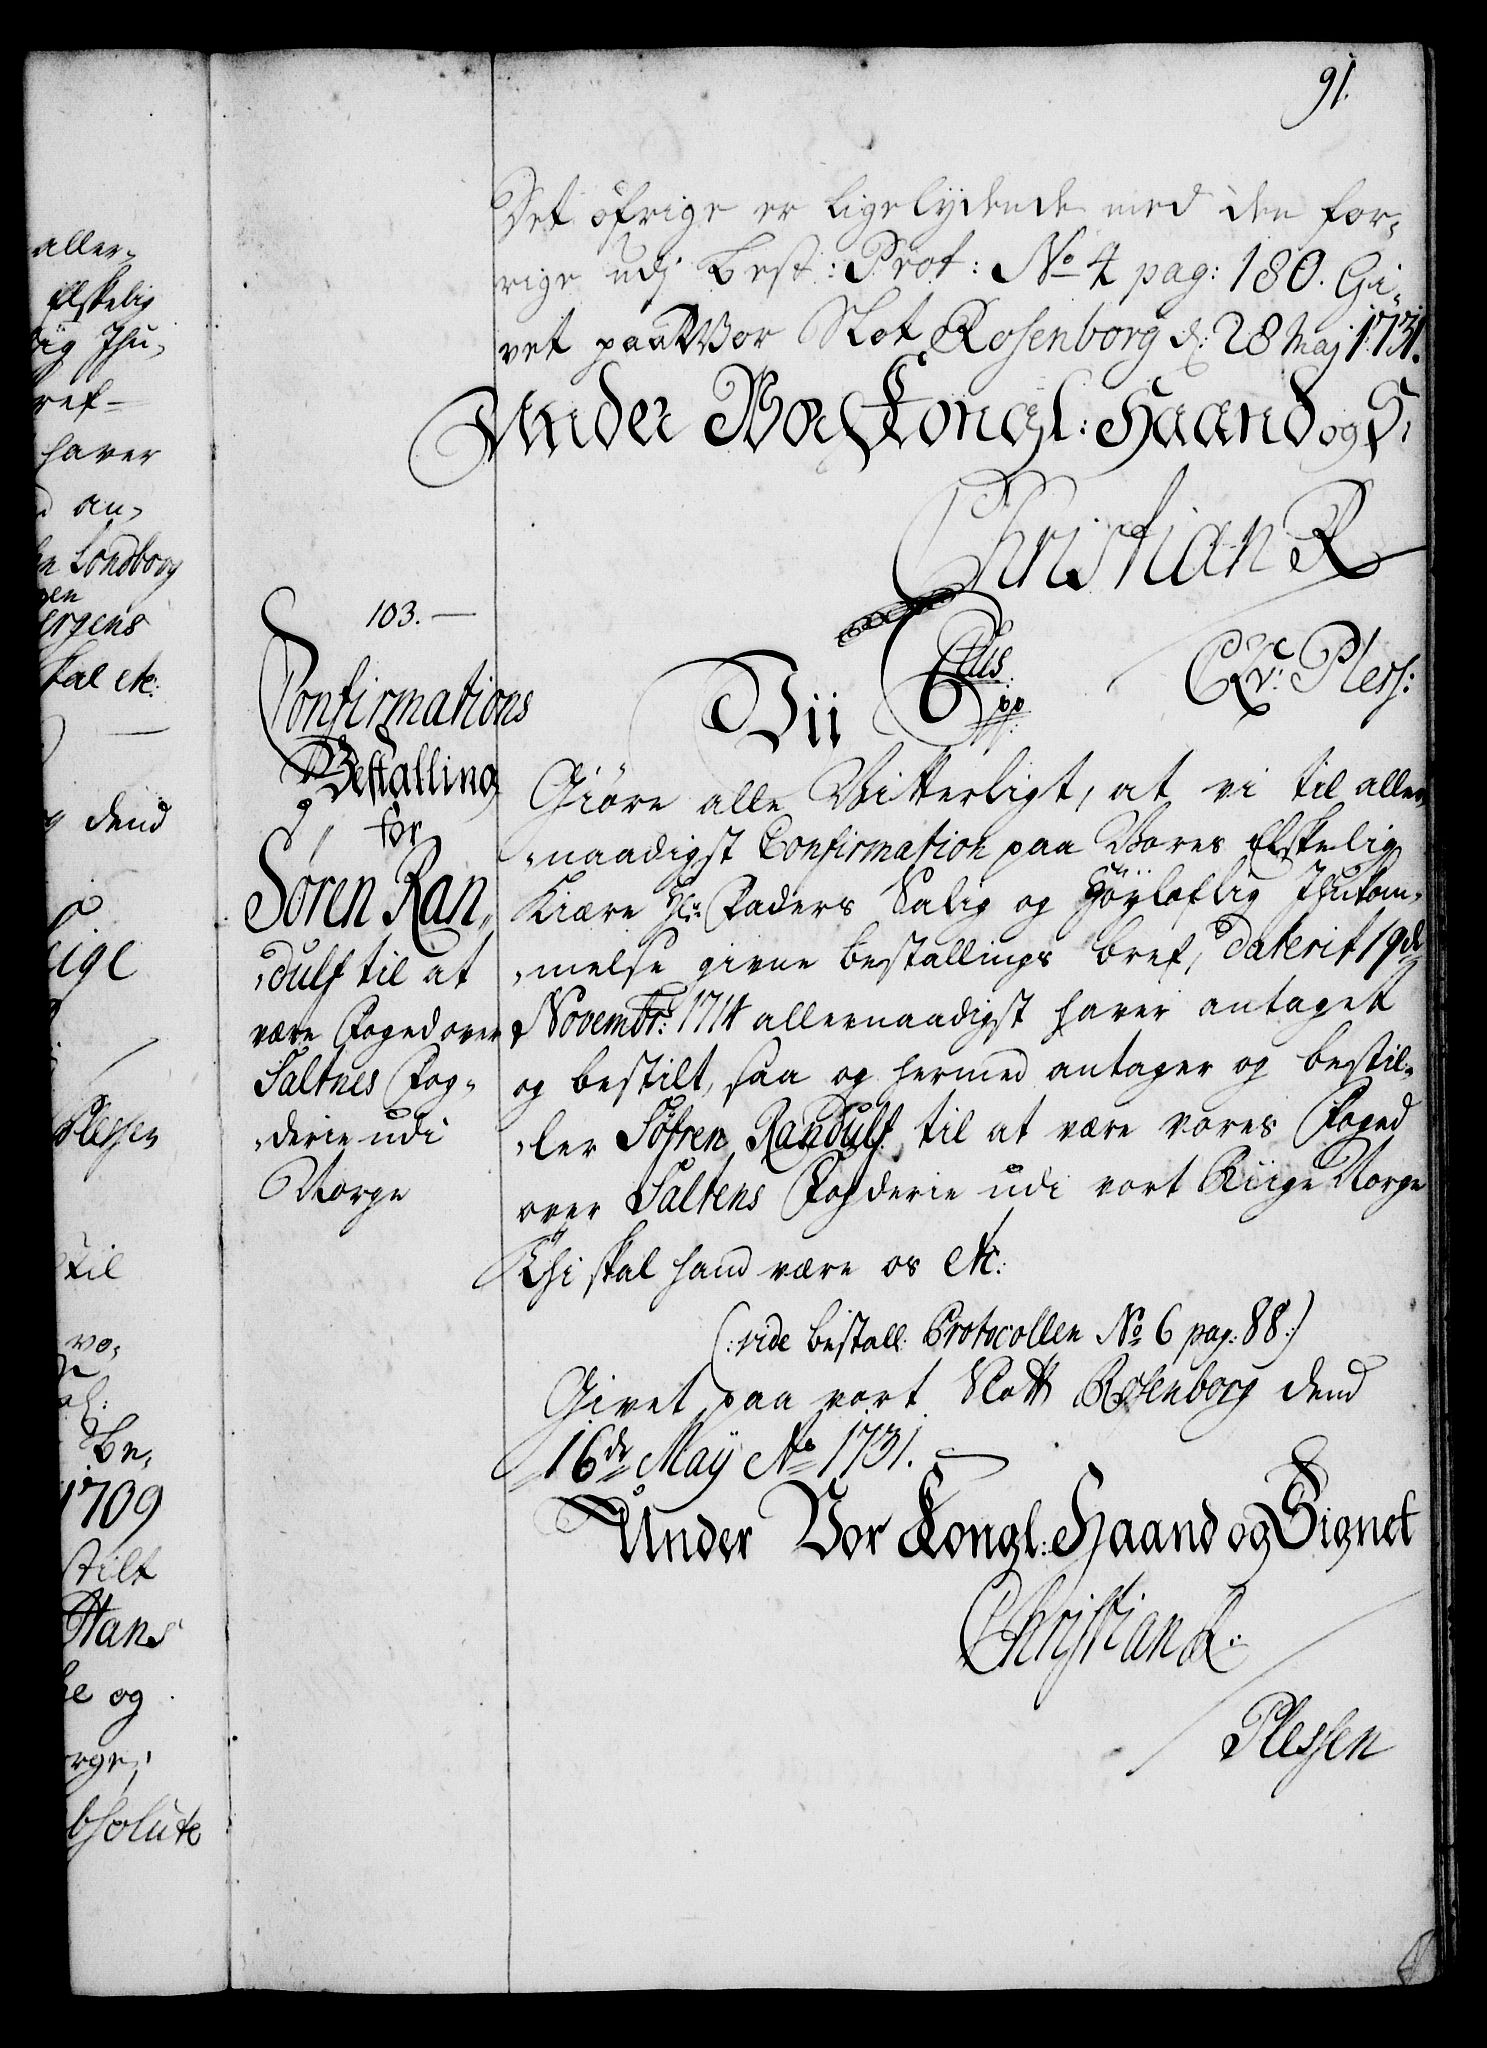 91.
Det öfrige er ligelydende med den for-
rige udj Best: Prot: No 4 pag: 180. Gi-
vet paa Vor Slot Rosenborg d: 28 Maj 1731.
Under Vor Kongl: Haand og S.
Christian R
C. A. v: Pless:
103. —
Confirmations
Bestalling
for
Sören Ran-
-dulf til at
være Foged over
Saltnes Fog-
-derie udi
Norge
Vii C 6tus pp
Giöre alle Vitterligt, at vi til aller-
-naadigst Confirmation paa Vores Elskelig
Kiære Hr: Faders Salig og Höyloflig Ihukom-
-melse givne bestallings bref, daterit 19de
Novembr: 1714 allernaadigst haver antaget
og bestilt, saa og hermed antager og bestil-
-ler Söfren Randulf til at være vores Foged
over Saltens Fogderie udi vort Riige Norge
Thi skal hand være os etc:
(:vide bestall: Protocollen No 6 pag: 88:)
Givet paa vort Slott Rosenborg dend
16de Maÿ Ao 1731.
Under Vor Kongl: Haand og Signet
Christian R:
Plessen
aller-
Elskelig
Ihu-
haver
an-
Londborg
ergens
skal etc:
dend
Plessen
til
Be-
1709
stilt
Hans
og
bsolute